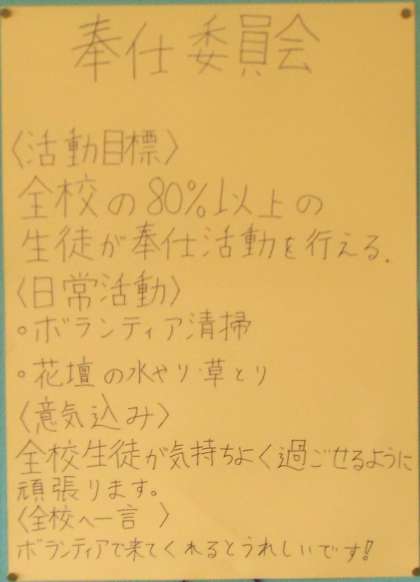 奉仕委員会
〈活動目標〉
全校の80%以上の
生徒が奉仕活動を行える.
〈日常活動〉
◦ボランティア清掃
◦花壇の水やり・草とり
〈意気込み〉
全校生徒が気持ちよく過ごせるように
頑張ります。
〈全校へ一言 〉
ボランティアで来てくれるとうれしいです!